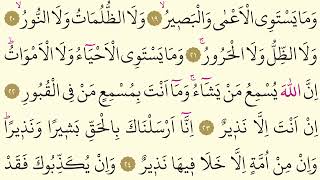 وَمَا يَسْتَوِي الْاَعْمٰى وَالْبَص۪يرُۙ ﴿١٩﴾ وَلَا الظُّلُمَاتُ وَلَا النُّورُۙ ﴿٢٠﴾
وَلَا الظِّلُّ وَلَا الْحَرُورُۚ ﴿٢١﴾ وَمَا يَسْتَوِي الْاَحْيَٓاءُ وَلَا الْاَمْوَاتُۜ
اِنَّ اللّٰهَ يُسْمِعُ مَنْ يَشَٓاءُۚ وَمَٓا اَنْتَ بِمُسْمِعٍ مَنْ فِي الْقُبُورِ ﴿٢٢﴾
اِنْ اَنْتَ اِلَّا نَذ۪يرٌ ﴿٢٣﴾ اِنَّٓا اَرْسَلْنَاكَ بِالْحَقِّ بَش۪يرًا وَنَذ۪يرًاۜ
وَاِنْ مِنْ اُمَّةٍ اِلَّا خَلَا ف۪يهَا نَذ۪يرٌ ﴿٢٤﴾ وَاِنْ يُكَذِّبُوكَ فَقَدْ